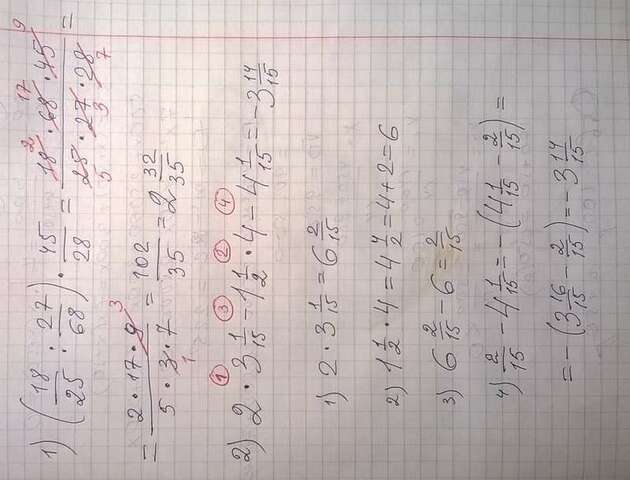 1) (18/25 : 27/68) · 45/28 = 18 · 68 · 45 / 25 · 27 · 28 =
= 2 · 17 · 9 / 5 · 3 · 7 = 102/35 = 2 32/35
① ③ ② ④
2) 2 · 3 1/15 - 1 1/2 · 4 - 4 1/15 = -3 14/15
1) 2 · 3 1/15 = 6 2/15
2) 1 1/2 · 4 = 4 4/2 = 4 + 2 = 6
3) 6 2/15 - 6 = 2/15
4) 2/15 - 4 1/15 = -(4 1/15 - 2/15) =
= -(3 16/15 - 2/15) = -3 14/15